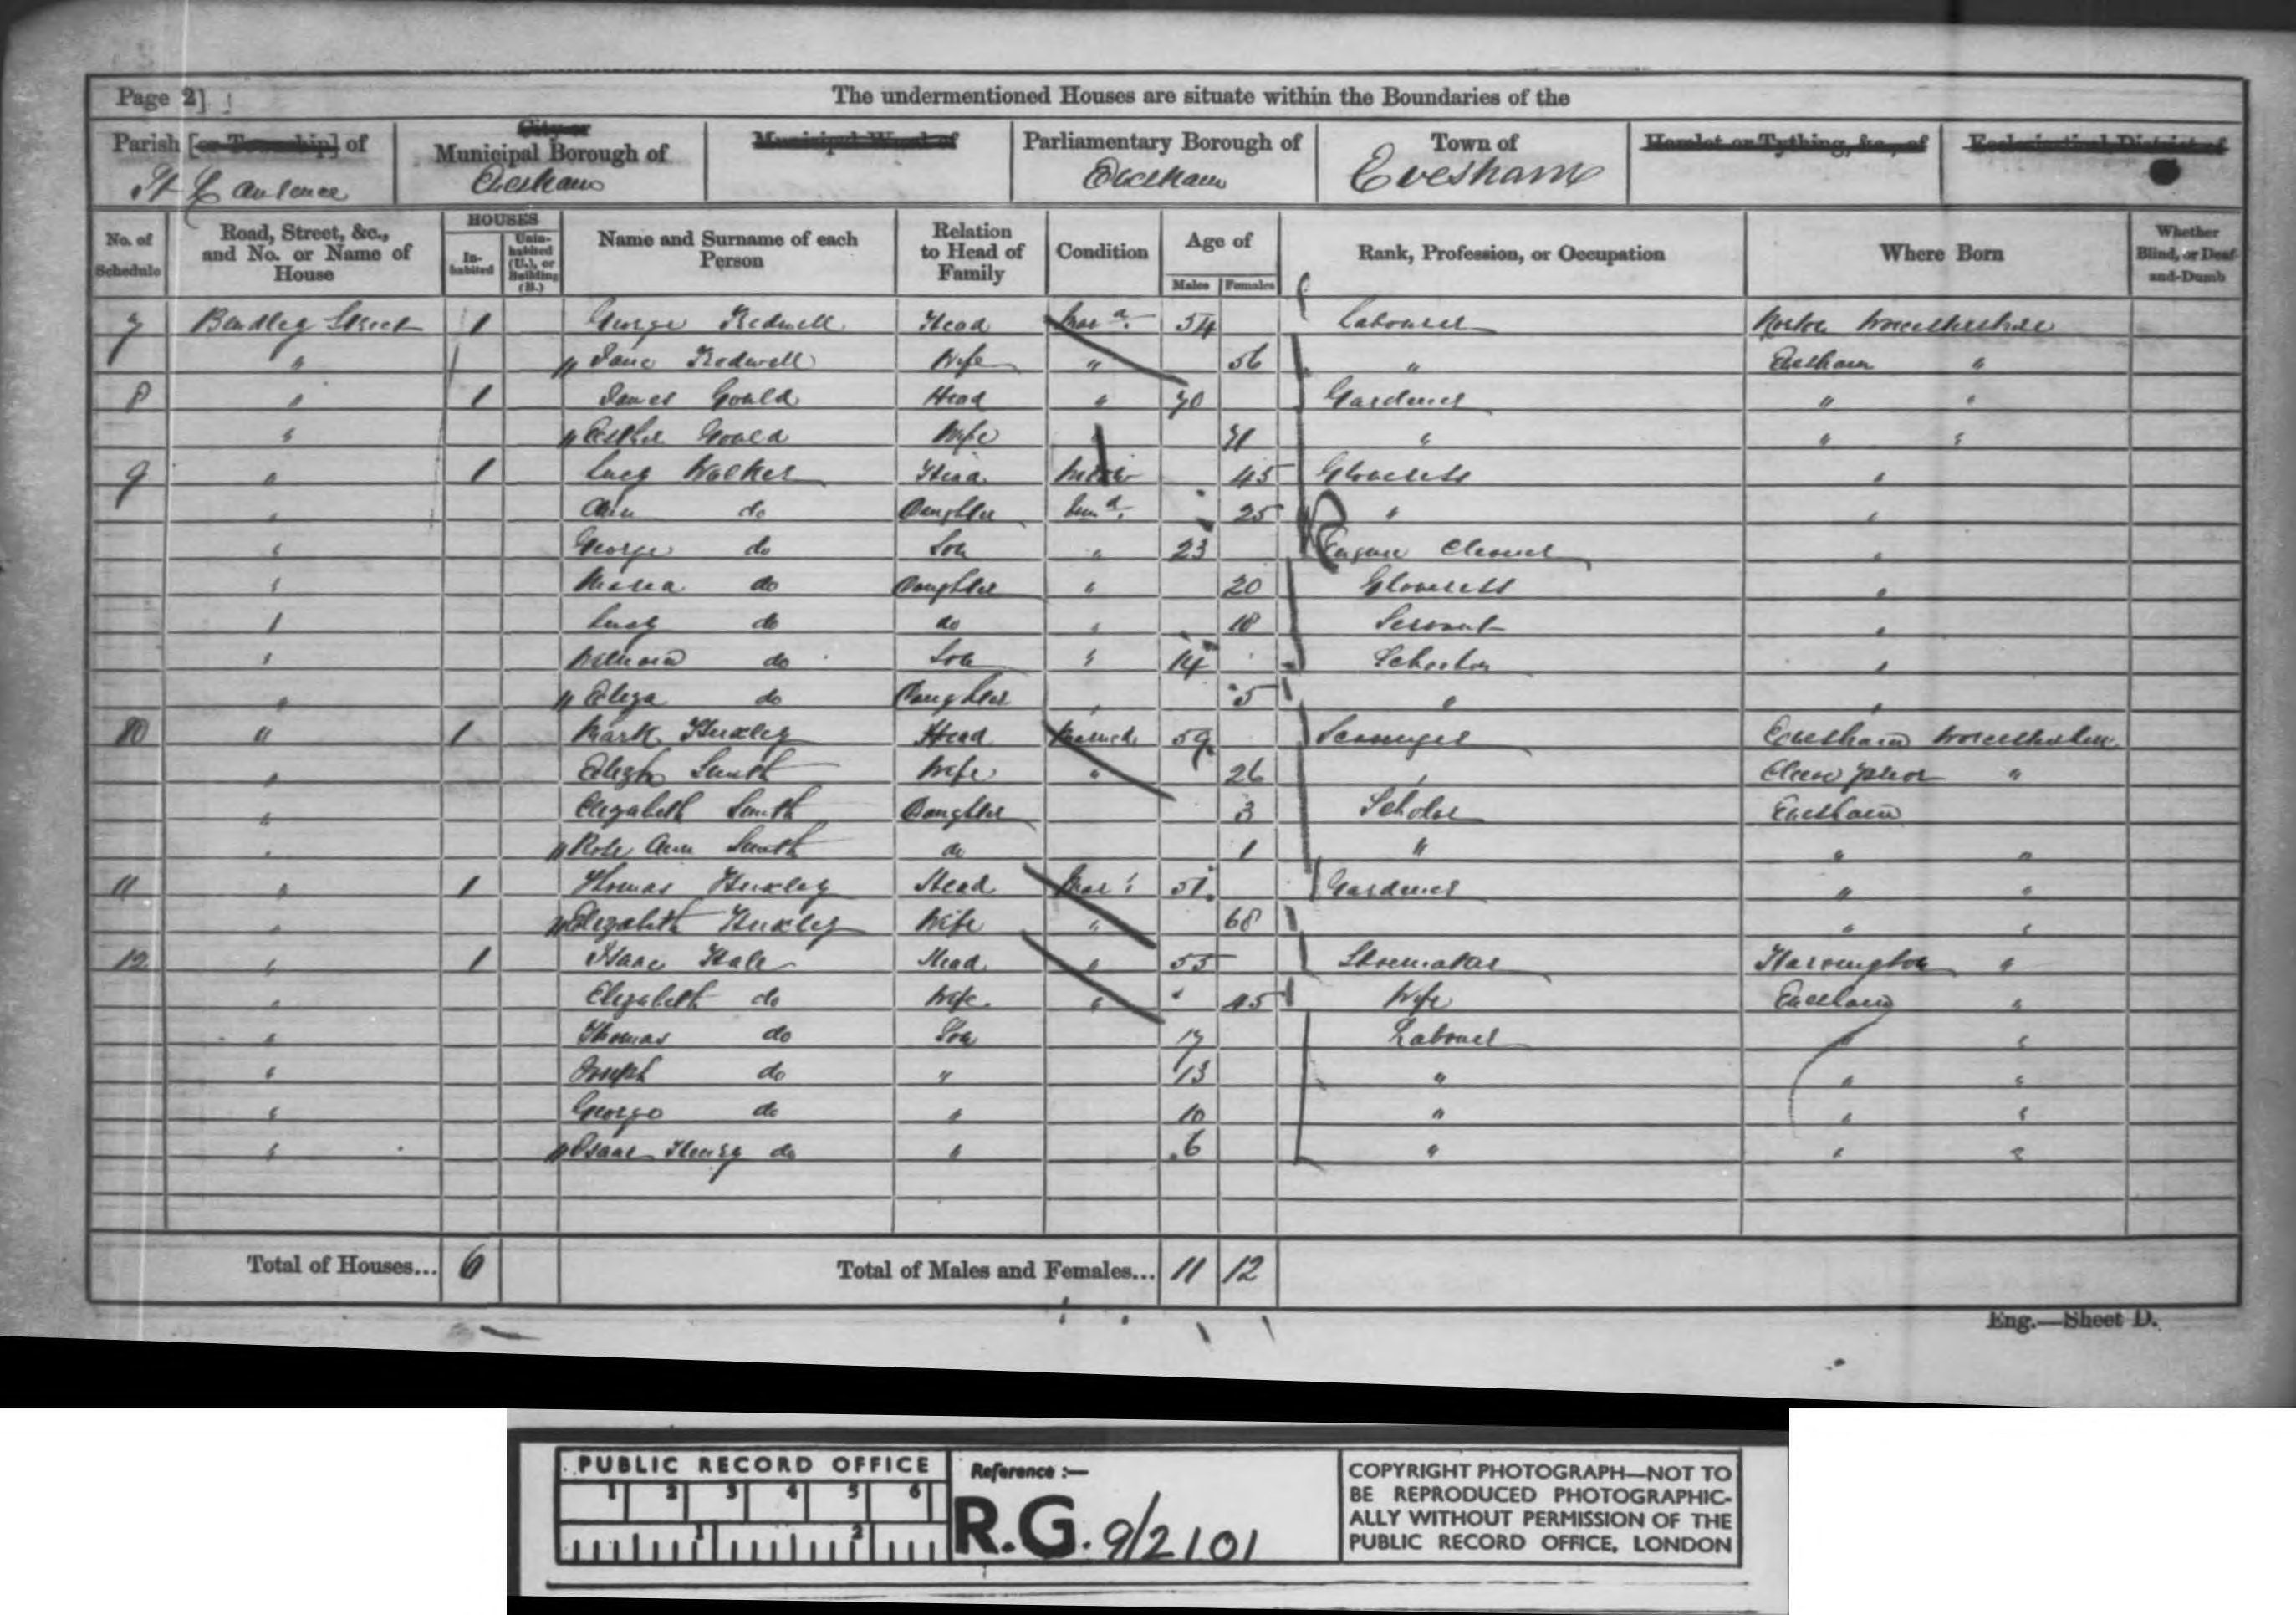 Page 2]
The undermentioned Houses are situate within the Boundaries of the
Parish [or Township] of
St Laurence
City or
Municipal Borough of
Evesham
Municipal Ward of
Parliamentary Borough of
Evesham
Town of
Evesham
Hamlet or Tything, &c., of
Ecclesiastical District of
No. of Schedule
Road, Street, &c., and No. or Name of House
HOUSES
In-habited
Unin-habited (U.), or Building (B.)
Name and Surname of each Person
Relation to Head of Family
Condition
Age of
Males
Females
Rank, Profession, or Occupation
Where Born
Whether Blind, or Deaf-and-Dumb
7 Street 1 George Head Mar d. 54 Labourer Norton Worcestershire
" " Jane Wife " 56 " Evesham "
8 " 1 James Gould Head " 70 Gardener " "
" " Esther Gould Wife " 71 " " "
9 " 1 Lucy Walker Head Widow 45 Gloveress "
" Ann do Daughter Unm d. 25 " "
" George do Son " 23 Engine Cleaner "
" Maria do Daughter " 20 Gloveress "
" Lucy do do " 18 Servant "
" William do Son " 14 Scholar "
" " Eliza do Daughter " 5 " "
10 " 1 Mark Huxley Head Married 59 Scavenger Evesham Worcestershire
" Smith Wife " 26 " Cleeve Prior "
" Elizabeth Smith Daughter 3 Scholar Evesham
" " Rose Ann Smith do 1 " " "
11 " 1 Thomas Huxley Head Mar d 51 Gardener " "
" " Elizabeth Huxley Wife " 68 " "
12 " 1 Isaac Hale Head " 55 Shoemaker Harvington "
" Elizabeth do Wife " 45 Wife Evesham "
" Thomas do Son 17 Labourer " "
" Joseph do " 13 " " "
" George do " 10 " " "
" " Isaac Henry do " 6 " " "
Total of Houses... 6
Total of Males and Females... 11 12
Eng.—Sheet D.
PUBLIC RECORD OFFICE
1 2 3 4 5 6
1 2
Reference :—
R.G. 9/2101
COPYRIGHT PHOTOGRAPH—NOT TO
BE REPRODUCED PHOTOGRAPHIC-
ALLY WITHOUT PERMISSION OF THE
PUBLIC RECORD OFFICE, LONDON